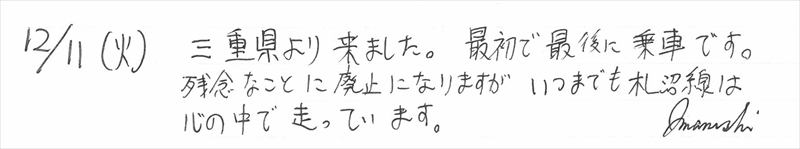 12/11(火) 三重県より来ました。最初で最後に乗車です。
残念なことに廃止になりますが いつまでも札沼線は
心の中で走っています。